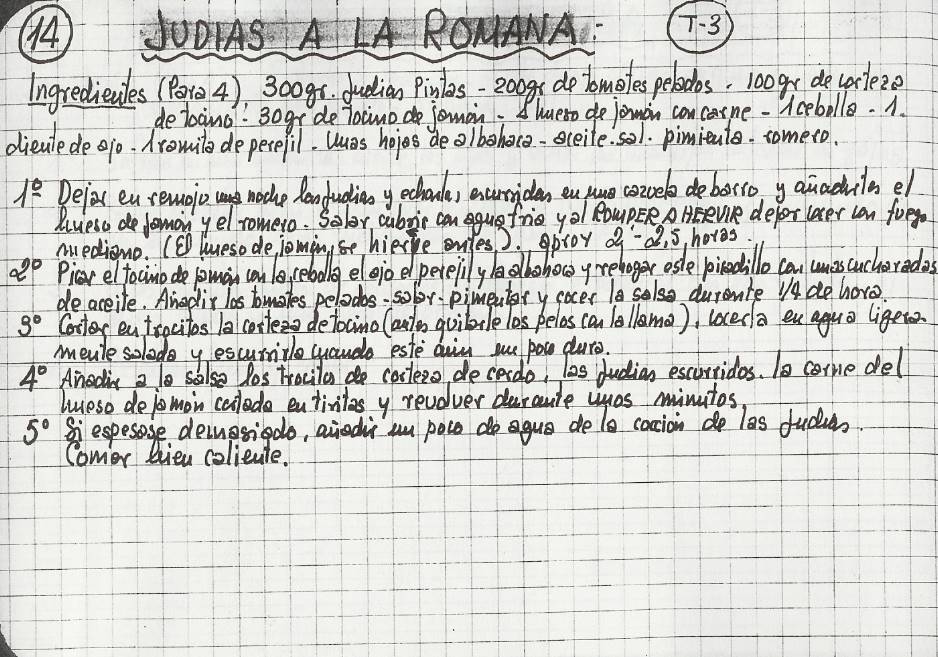 14 JUDIAS A LA ROMANA: T-3
Ingredientes (Para 4) 300gr. Judias Pintas - 200gr de tomates pelados - 100gr de corteza
de tocino - 30gr de Tocino de jamón - 1 hueso de jamón con carne - 1 cebolla - 1.
diente de ajo - 1 ramita de perejil - Unas hojas de albahaca - aceite. sal. pimienta - romero.
1º Dejar en remojo una noche las judias y echarlas, escurridas en una cazuela de barro y añadirles el
hueso de jamón y el romero. Salar cubrir con agua fria y al ROMPER A HERVIR dejar cocer con fuego
mediano. (El hueso de jamón, se hierve antes). aprox 2 - 2,5 horas.
2º Picar el tocino de jamón con la cebolla el ajo el perejil y la albahaca y rehogar este picadillo con unas cucharadas
de aceite. Añadir los tomates pelados - salar - pimentar y cocer la salsa durante 1/4 de hora.
3º Cortar en trocitos la corteza de tocino (antes quitarle los pelos con la llama), cocerla en agua ligera-
mente salada y escurrirla cuando esté aún un poco dura.
4º Añadir a la salsa los trocitos de corteza de cerdo, las judias escurridas. la carne del
hueso de jamón cortada en tiritas y revolver durante unos minutos.
5º Si espesase demasiado, añadir un poco de agua de la cocción de las Judias.
Comer bien caliente.